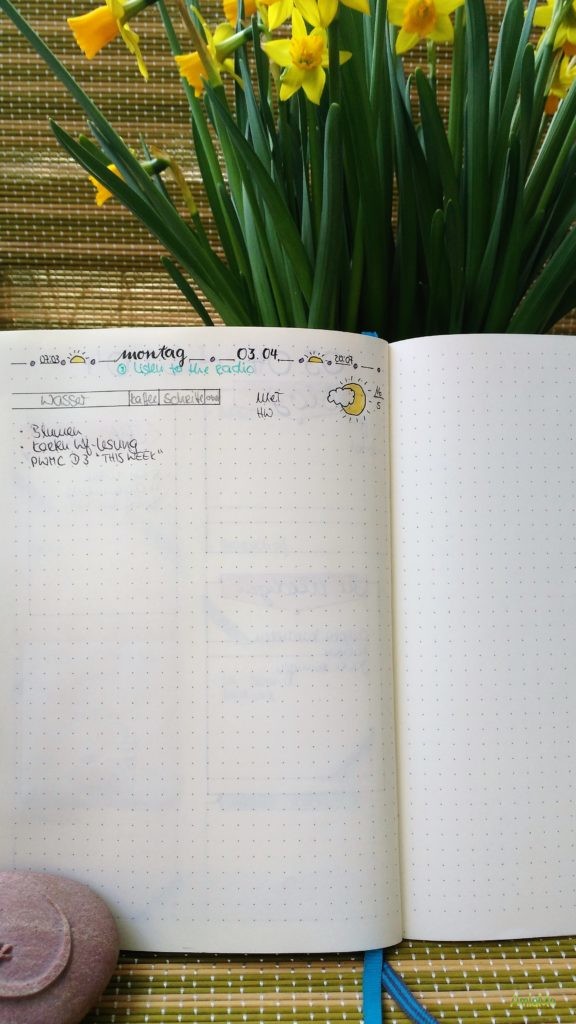 07:03 montag 03.04. 20:07
listen to the radio
wasser kaffee schritte obst
Miet
HW
16
5
· Blumen
· Karten WP-Lesung
· PWMC D3 "THIS WEEK"